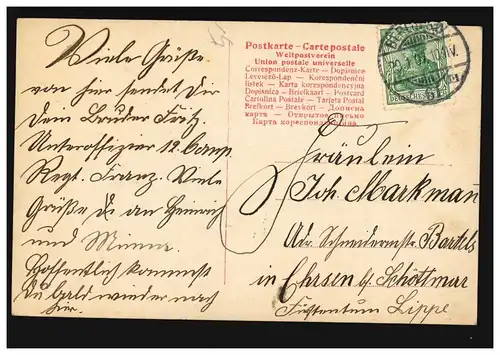 Viele Grüße
von hier sendet dir
dein Bruder Fritz.
Unteroffizier 12. Comp.
Regt. Franz. Viele
Grüße du an Heinrich
und Minna.
Hoffentlich kommst
du bald wieder nach
hier.
Postkarte - Carte postale
Weltpostverein
Union postale universelle
Correspondenz-Karte — Dopisnice
Levelező-Lap — Korespondenční
lístek — Karta korespondencyjna
Dopisnica — Briefkaart — Postcard
Cartolina Postale — Tarjeta Postal
Brefkort — Brevkort — Дописна
карта — Открытое письмо
Карта
Fräulein
Joh. Markmann
Adr. Schneidermstr. Bartels
in Ehrsen b. Schöttmar
Fürstentum Lippe